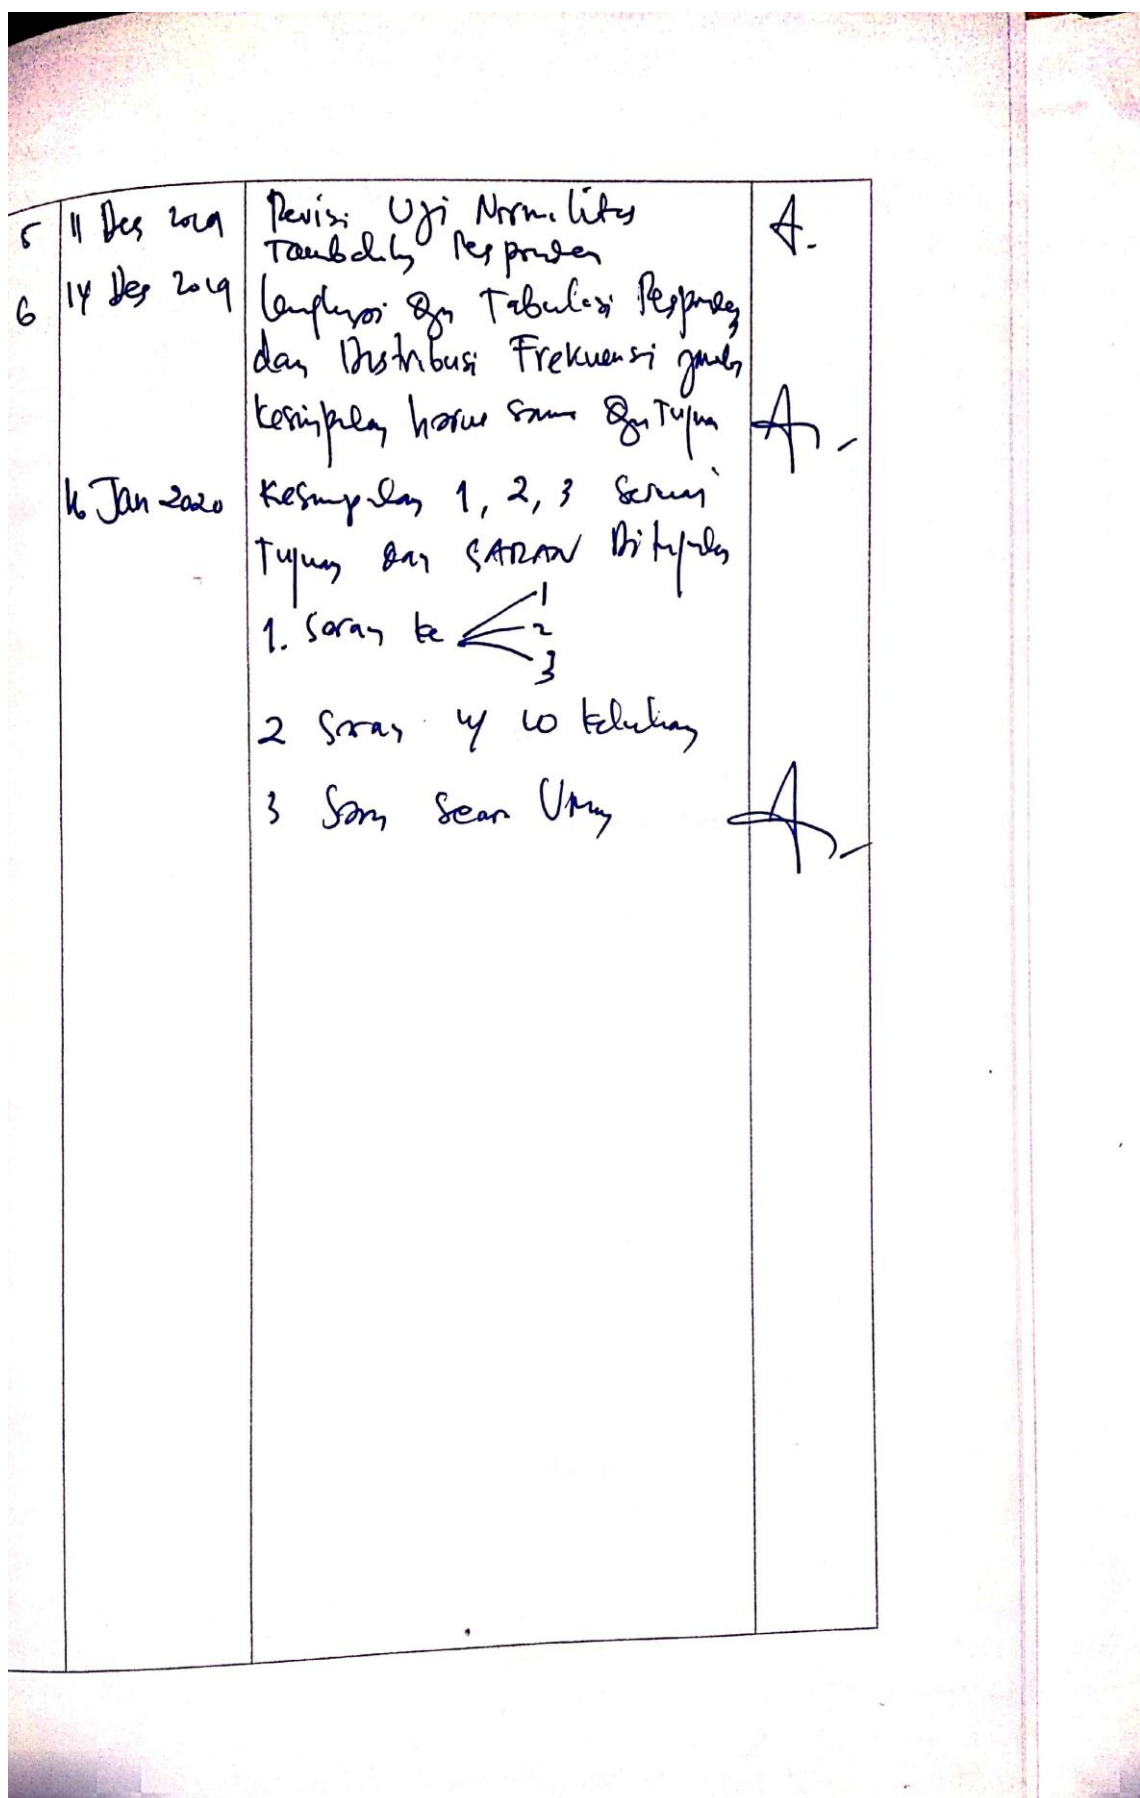 5 11 Des 2019 Revisi Uji Normalitas
Tambahkan Responden
6 14 Des 2019 Lengkapi Dgn Tabulasi Responden
dan Distribusi Frekuensi
Kesimpulan harus sama Dgn Tujuan
16 Jan 2020 Kesimpulan 1, 2, 3 sesuai
Tujuan dan SARAN
1. Saran ke 1
2
3
2 Saran
3 Saran Umum